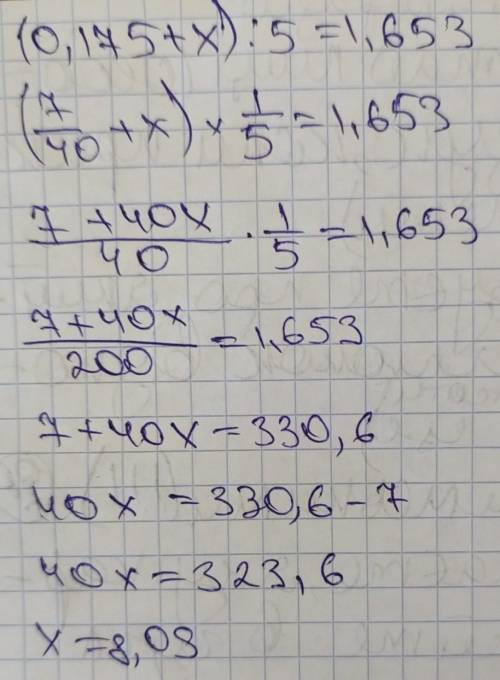 (0,175+x):5=1,653
(7/40+x)×1/5=1,653
7+40x/40·1/5=1,653
7+40x/200=1,653
7+40x=330,6
40x=330,6-7
40x=323,6
x=8,09